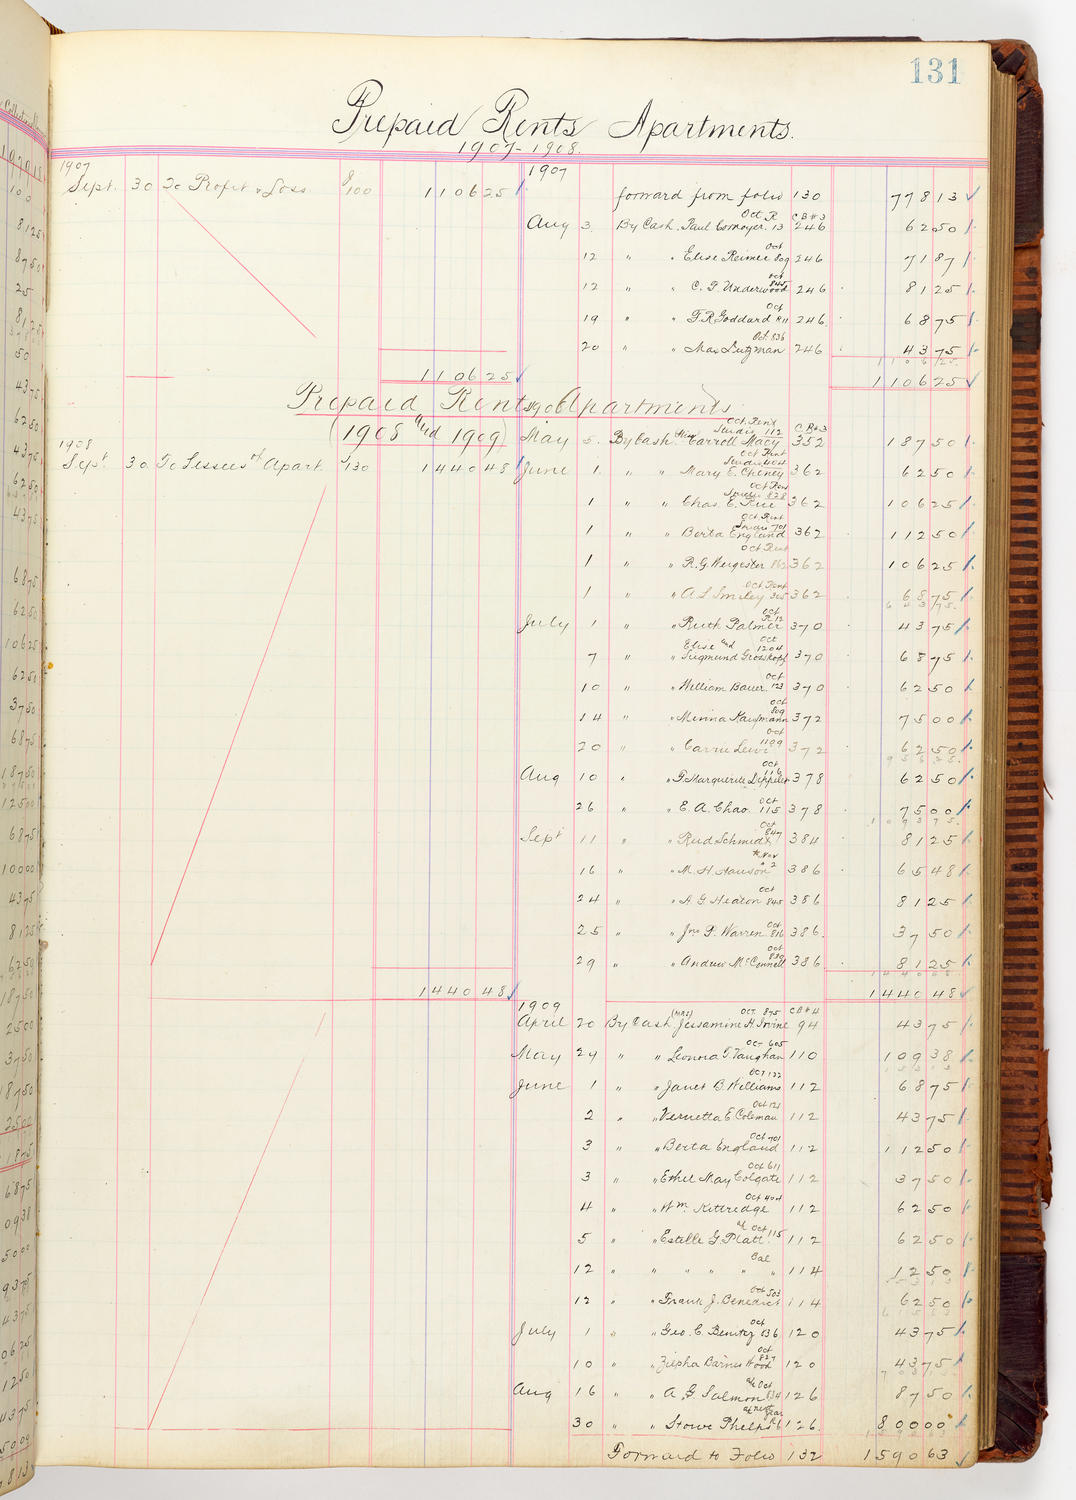 131
Prepaid Rents Apartments.
1907-1908.
1907
Sept. 30 To Profit & Loss £100 110625
1907
forward from folio 130 77813
Aug 3 By Cash. Paul Oct R 13 CB#3 246 6250
12 " " Elise Reimer Oct 809 246 7187
12 " " C. P. Underwood Oct 845 246 8125
19 " " F. R. Goddard Oct R11 246 6875
20 " " Max Lutzman Oct. 836 246 4375
110625
110625 110625
Prepaid Rents Apartments
(1908 and 1909)
1908
Sept. 30 To Lessees of Apart. 130 144048
1908
May 5 By Cash. Miss Carroll Macy Oct. Rent Studio 112 CB#3 352 18750
June 1 " " Mary E. Cheney Oct Rent Studio 404 362 6250
1 " " Chas. E. Rue Oct Rent Studio 828 362 10625
1 " " Berta England Oct Rent Studio 701 362 11250
1 " " R. G. Oct Rent 362 10625
1 " " A L Smiley Oct Rent 305 362 6875
64375
July 1 " " Ruth Palmer Oct R 12 370 4375
7 " " Elise and Siegmund Grosskopf Oct 1204 370 6875
10 " " William Bauer Oct 123 370 6250
14 " " Minna Kaufmann Oct 809 372 7500
20 " " Carrie Lewi Oct 1109 372 6250
95625
Aug 10 " " F. Marguerite Oct 116 378 6250
26 " " E. A. Chao. Oct 115 378 7500
109375
Sept 11 " " Rud Schmidt Oct 847 384 8125
16 " " M. H. Hanson Nov 2 386 6548
24 " " A G Heaton Oct 845 386 8125
25 " " Jno P. Warren Oct 816 386 3750
29 " " Andrew McConnell Oct 830 386 8125
144048
144048 144048
1909
April 20 By Cash (Mrs) Jessamine H. Irvine Oct. 875 CB#4 94 4375
May 24 " " Leonora T. Vaughan Oct 605 110 10938
15313
June 1 " " Janet B. Williams Oct 122 112 6875
2 " " Vernetta E. Coleman Oct 121 112 4375
3 " " Berta England Oct 701 112 11250
3 " " Ethel May Colgate Oct 611 112 3750
4 " " Wm. Kittredge Oct 404 112 6250
5 " " Estelle G. Platt a/c Oct 115 112 6250
12 " " " " " " Bal 114 1250
12 " " Frank J. Benedict Oct 503 114 6250
61563
July 1 " " Geo. C. Benitez Oct 836 120 4375
10 " " Ziepha Barnes Wood Oct 827 120 4375
70313
Aug 16 " " A. G. Salmon a/c Oct 834 126 8750
30 " " Stowe Phelps a/c Next Year 126 80000
Forward to Folio 132 159063